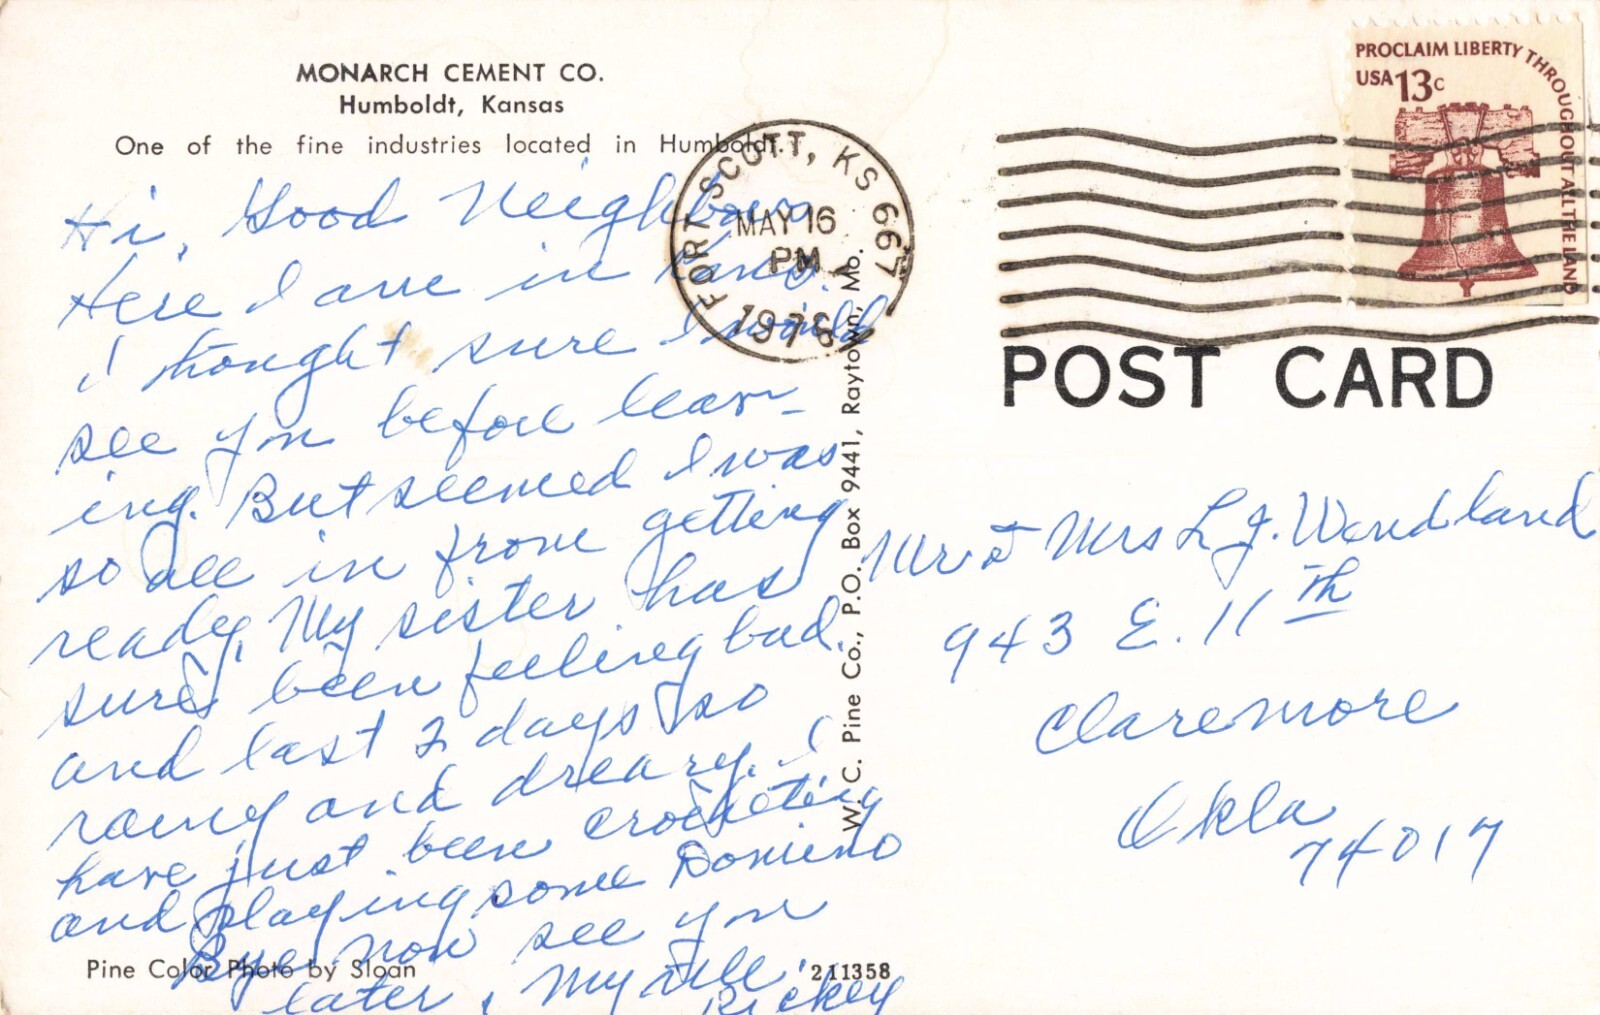 MONARCH CEMENT CO.
Humboldt, Kansas
One of the fine industries located in Humboldt.
Hi, Good Neighbors
Here I am in Kans.
I thought sure I would
see you before leav-
ing. But seemed I was
so all in from getting
ready. My sister has
sure been feeling bad.
and last 2 days so
rainy and dreary. I
have just been crocheting
and playing some Domino
Bye now see you
later, Myrtle
Rickey
Pine Color Photo by Sloan
211358
W. C. Pine Co., P.O. Box 9441, Raytown, Mo.
FORT SCOTT, KS 667
MAY 16
PM
1976
PROCLAIM LIBERTY THROUGHOUT ALL THE LAND
USA 13c
POST CARD
Mr & Mrs L J. Wendland
943 E. 11th
Claremore
Okla
74017